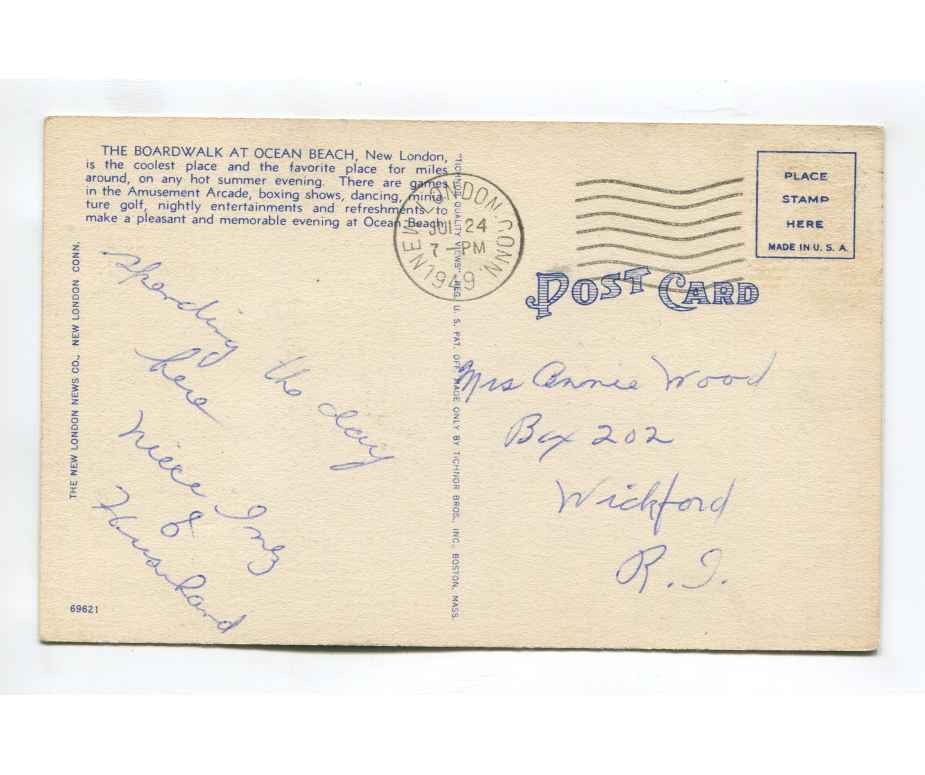 THE BOARDWALK AT OCEAN BEACH, New London,
is the coolest place and the favorite place for miles
around, on any hot summer evening. There are games
in the Amusement Arcade, boxing shows, dancing, minia-
ture golf, nightly entertainments and refreshments to
make a pleasant and memorable evening at Ocean Beach.
Spending the day
here
niece Inez
&
THE NEW LONDON NEWS CO., NEW LONDON CONN.
69621
"TICHNOR QUALITY VIEWS," REG. U. S. PAT. OFF. MADE ONLY BY TICHNOR BROS., INC., BOSTON, MASS.
NEW LONDON, CONN.
JUL 24
7 - PM
1949
PLACE
STAMP
HERE
MADE IN U. S. A.
POST CARD
Mrs Annie Wood
Box 202
Wickford
R. I.